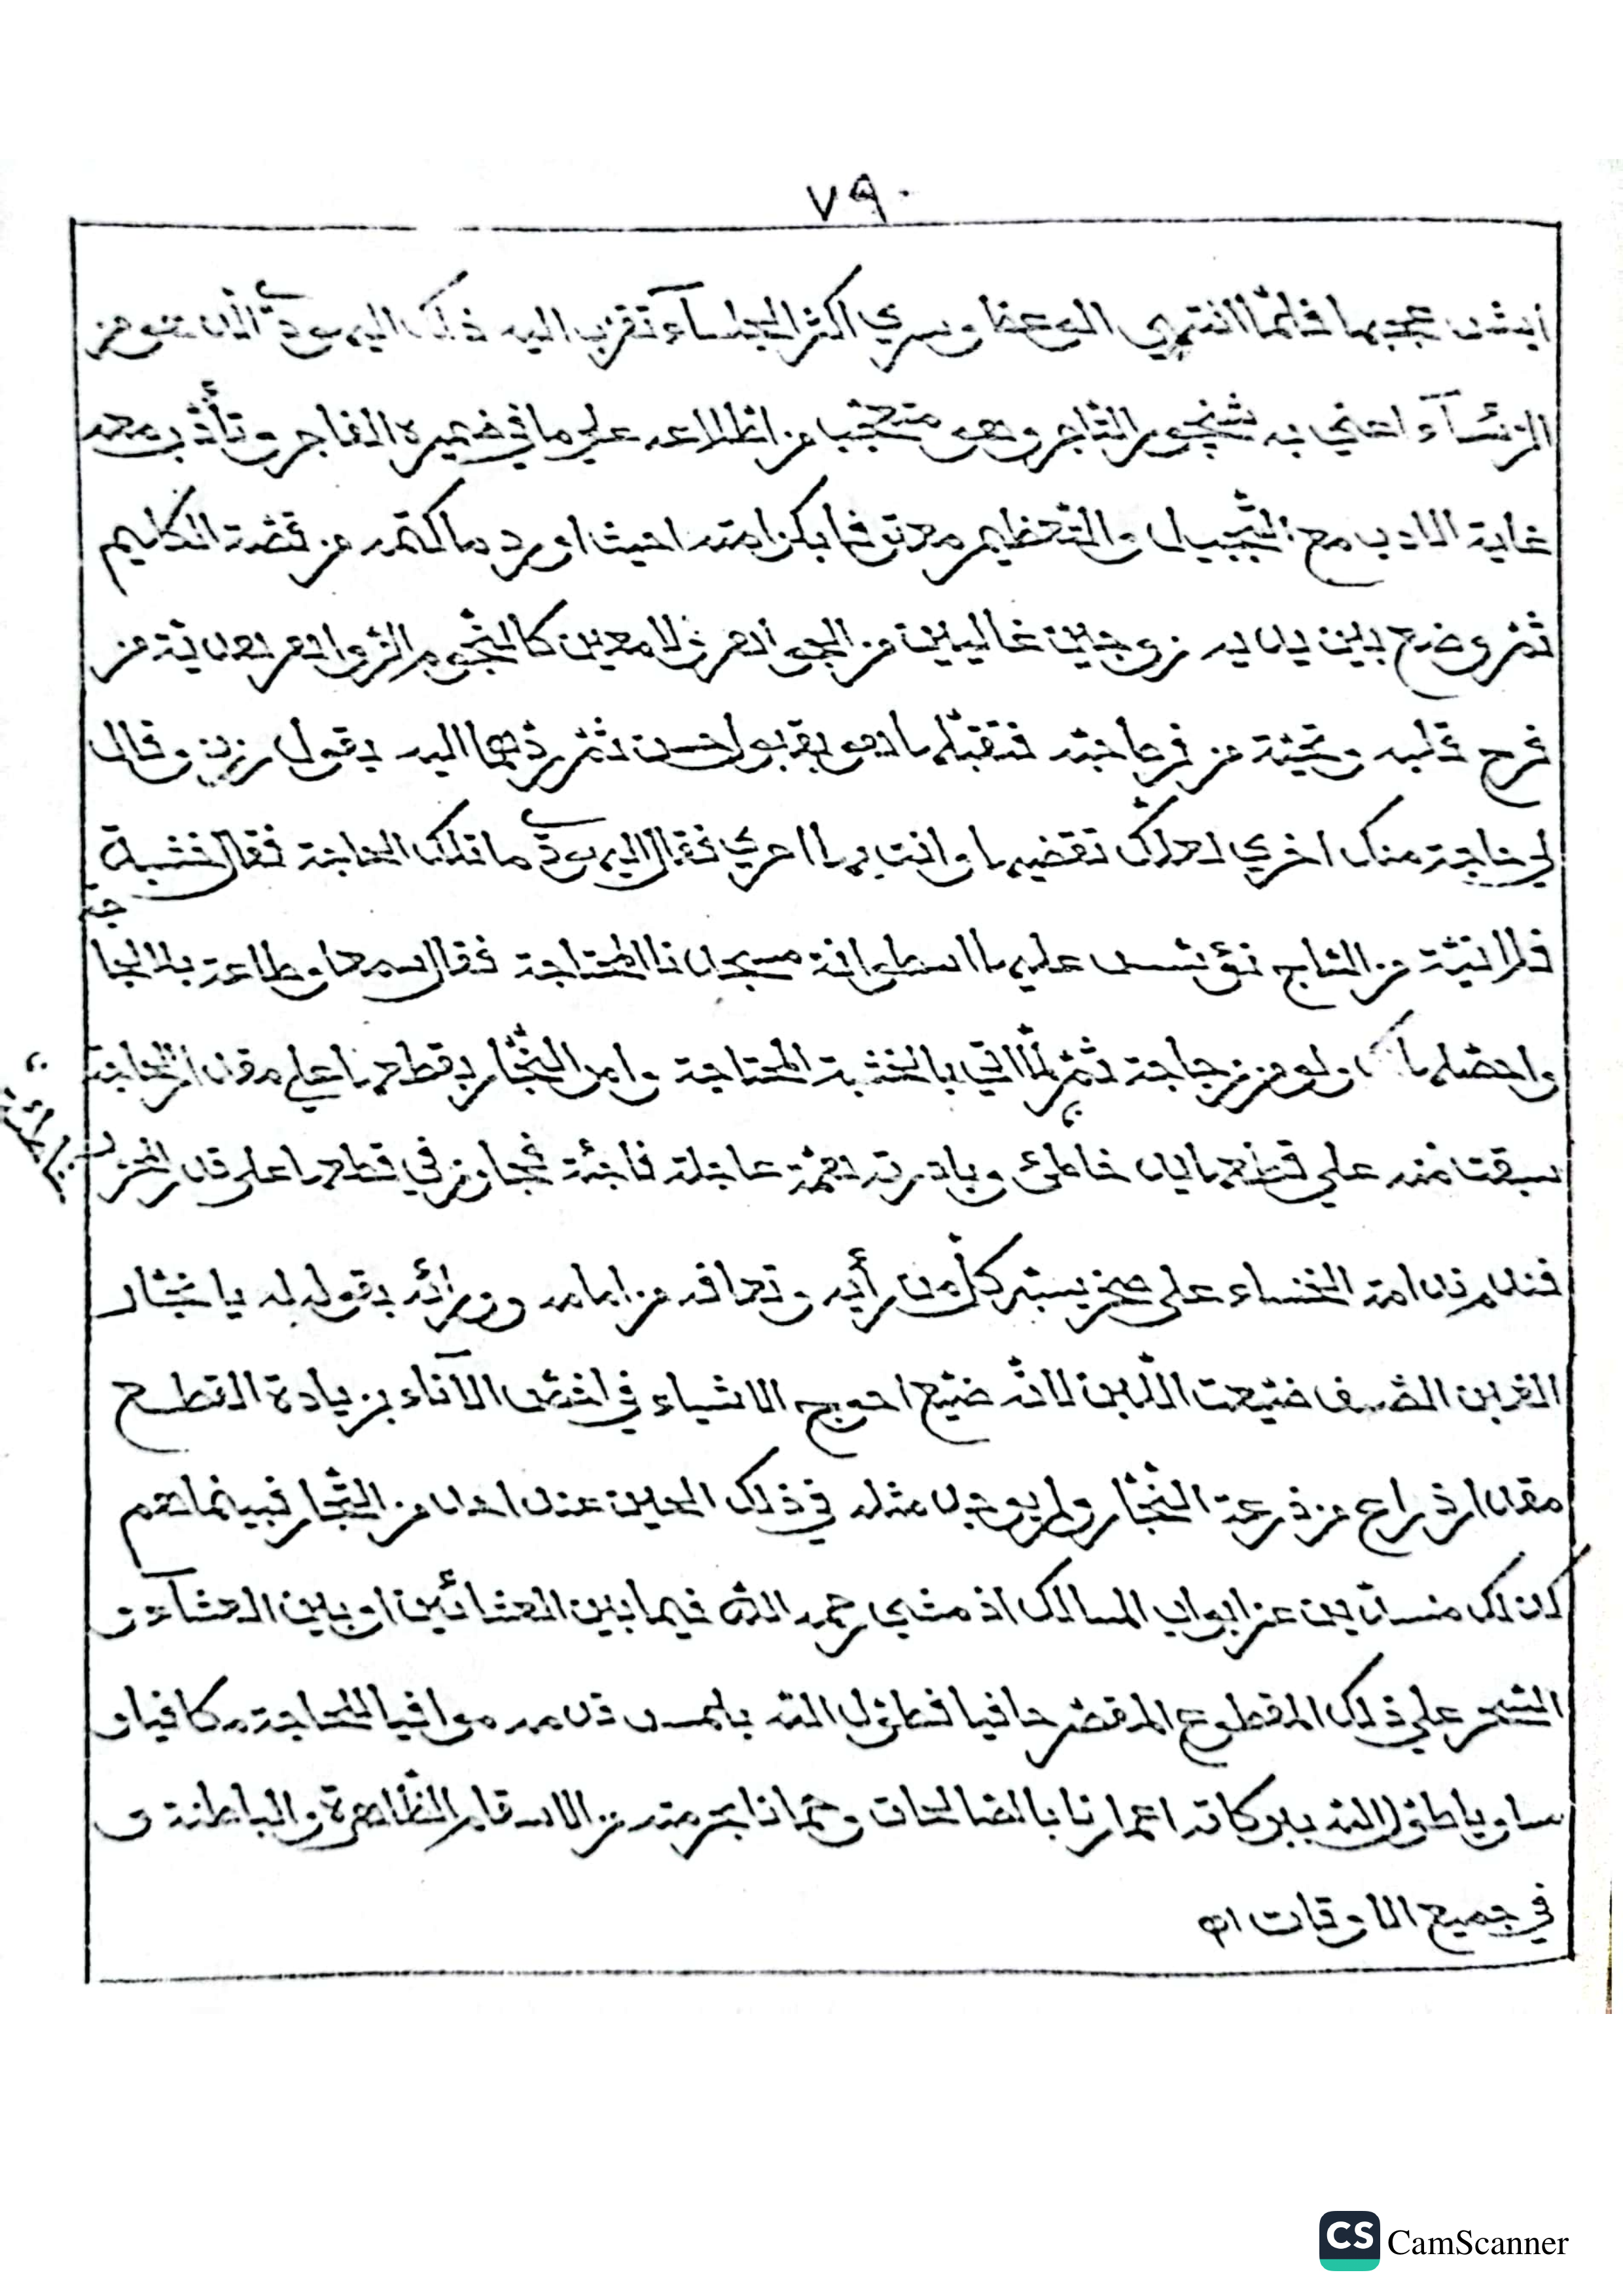 ٧٩
ايش عجبها فلمّا انتهي الوعظ وسري اكثر الجلسآء تقرب اليه ذلك اليهوديّ الذي هو من
الرئسآء اعني به شنجور التاجر وهو متعجّبا من اطّلاعه علي ما في ضميره الفاجر وتأدّب معه
غاية الادب مع التّبجيل والتّعظيم معترفا بكرامته احيث اورد ما كتمه من قصّة الكليم
ثمّ وضع بين يديه زوجين غاليين من الجواهر لامعين كالنّجوم الزّواهر هديّة من
فرح قلبه وتحيّة من فرحاجته فتقبّلهما هو بقبول حسن ثمّ ردّهما اليه بقول رزين وقال
لي حاجة منك اخري لعلّك تقضيها وانت بها احري فقال اليهوديّ ما تلك الحاجة فقال خشبة
فلانيّة من السّاج نؤسّس عليها اسطوانة مسجدنا المحتاجة فقال سمعا وطاعة بلا لجاجة
واحصّلها لك ولو من زجاجة ثمّ لمّا اتي بالخشبة المحتاجة وامر النّجّار بقطعها علي مقدار الحاجة
سبقت منه علي قطعها يد خاطئ وبادرته همّة عاجلة فاجئة فجاوز في قطعها علي قدر
فندم ندامة الخنساء علي صخر يستبركل من رأيه وتعاف من امامه وورائه بقوله له يا نجّار
الغبن الصّيف ضيّعت اللّبن لانّه ضيّع احوج الاشياء في اخصّ الآناء بزيادة القطع
مقدار ذراع من ذرعة النّجّار ولم يوجد مثله في ذلك الحين عند احد من التّجّار فبينما هم
كذلك منسدّين عن ابواب المسالك اذ مشي رحمه اللّه فيما بين العشائين او بين العشآء و
السّحر علي ذلك المقطوع المقصّر حافيا فطوّل اللّه بلمس قدمه موافيا للحاجة كافيا و
ساويا طوّل اللّه ببركاته اعمارنا بالصّالحات وحمانا بحرمته من الاسقام الظّاهرة والباطنة و
في جميع الاوقات اه
CS CamScanner